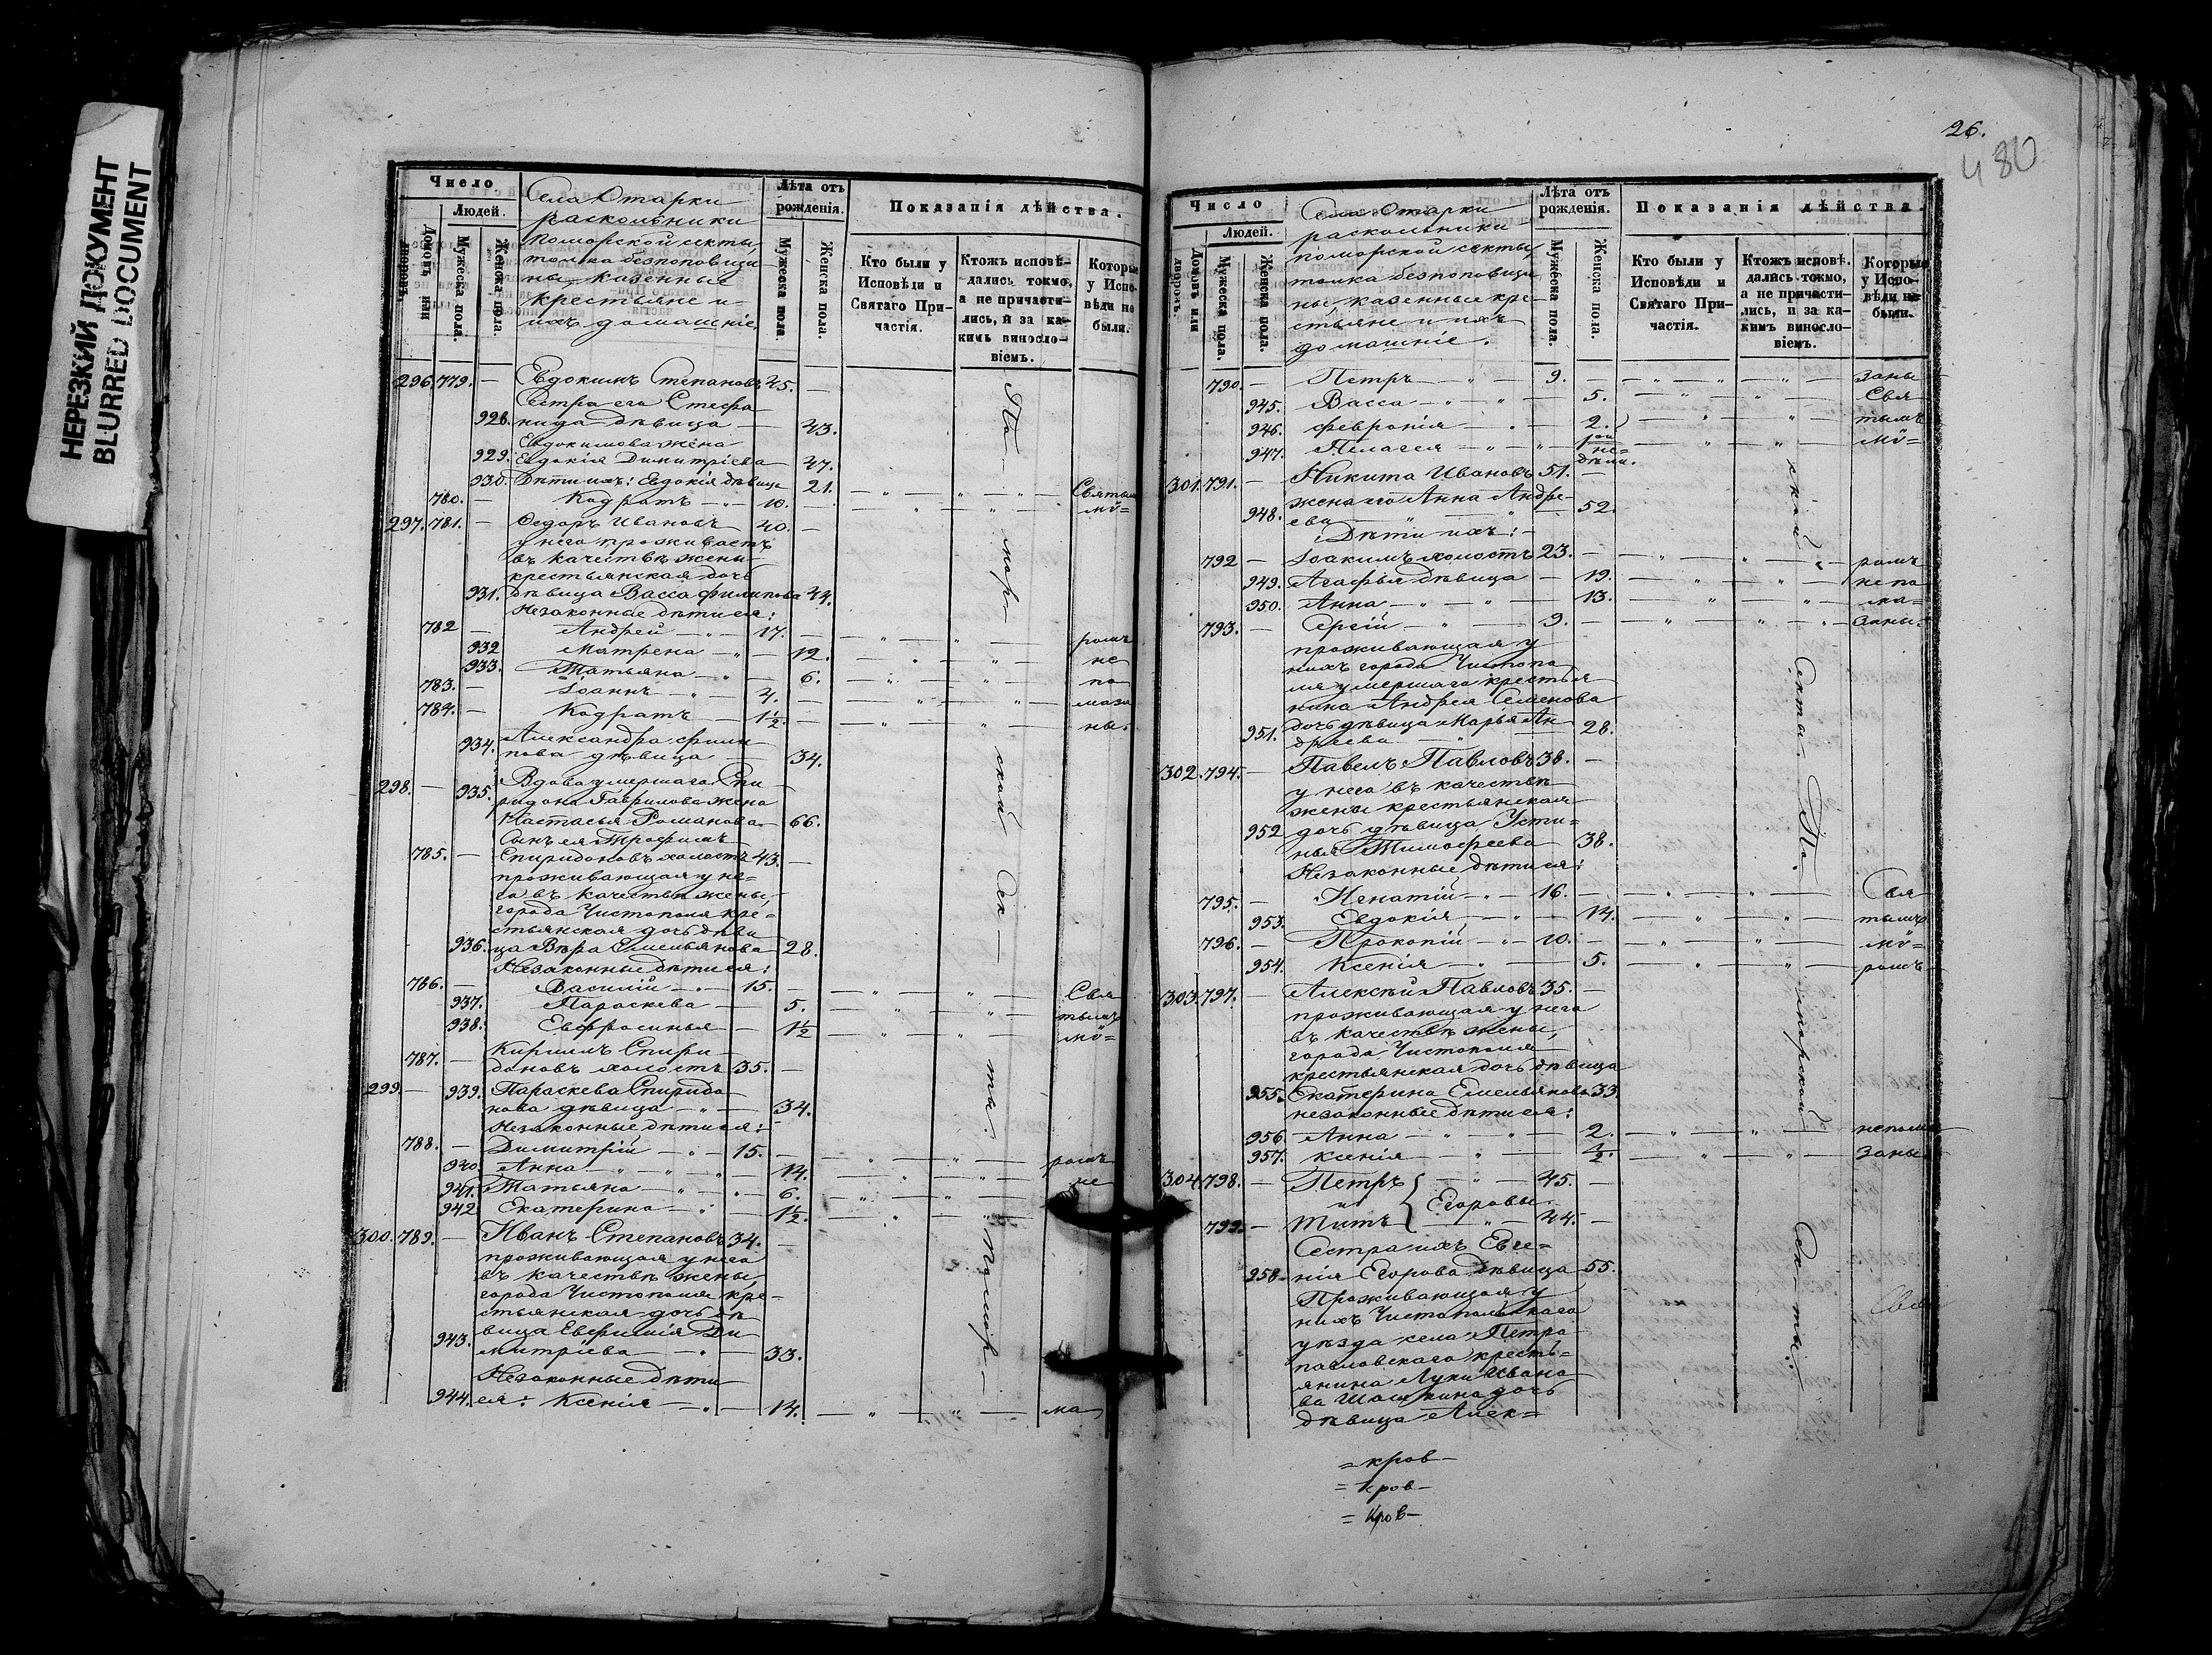 НЕРЕЗКИЙ ДОКУМЕНТ
BLURRED DOCUMENT
Число
Людей.
Домовъ или дворовъ.
Мужеска пола.
Женска пола.
Села Отарки
раскольники
поморской секты,
толка безпоповщи
ны, казенные
крестьяне и
ихъ домашніе.
Лѣта отъ рожденія.
Мужеска пола.
Женска пола.
Показанія дѣйства.
Кто были у Исповѣди и Святаго Причастія.
Ктожъ исповѣдались токмо, а не причастились, и за какимъ винословіемъ.
Которые у Исповѣди не были.
296. 779. — Евдокимъ Степановъ 45. —
Сестра его Стефа
928. нида дѣвица — 43.
Евдокимова жена
929. Евдокія Димитріева 47.
930. Дѣти ихъ: Евдокія дѣвица 21. Святым
780. — Кодратъ 10. — мѵ=
297. 781. — Ѳедоръ Ивановъ 40. —
у него проживаетъ
въ качествѣ жены
крестьянская дочь
931. дѣвица Васса Филипова 44.
Незаконные дѣти ея:
782 — Андрей 17. — ромъ
932 Матрена — 12. не
933. Татьяна — 6. по
783. — Іоаннъ 4. — маза
784. — Кодратъ 1½. — ны.
934. Александра Фили
пова дѣвица — 34.
298. — 935. Вдова умершаго Спи
ридона Гаврилова жена
Настасья Романова 66.
Сынъ ея Трофимъ
785. — Спиридоновъ холостъ 43. —
проживающая у не=
го въ качествѣ жены,
города Чистополя кре=
стьянская дочь дѣви
936. ца Вѣра Емельянова 28.
Незаконные дѣти ея:
786. — Василій 15. — Свя
937. Параскева — 5. тымъ
938. Евфросинья — 1½ мѵ=
787. — Кириллъ Спири
доновъ холостъ 35. —
299. — 939. Параскева Спиридо
нова дѣвица — 34.
Незаконные дѣти ея:
788. — Димитрій 15. — ромъ
940. Анна 14. не
941. Татьяна 6.
942. Екатерина — 1½.
300. 789. — Иванъ Степановъ 34. —
проживающая у него
въ качествѣ жены,
города Чистополя кре=
стьянская дочь дѣ
943. вица Евфимія Ди
митріева — 33.
Незаконные дѣти
944. ея: Ксенія — 14. ма
По — мор — ской Сек — ты.
Помор —
26.
480
Число
Людей.
Домовъ или дворовъ.
Мужеска пола.
Женска пола.
Села Отарки
раскольники
поморской секты,
толка безпоповщи
ны, казенные кре
стьяне и ихъ
домашніе.
Лѣта отъ рожденія.
Мужеска пола.
Женска пола.
Показанія дѣйства.
Кто были у Исповѣди и Святаго Причастія.
Ктожъ исповѣдались токмо, а не причастились, и за какимъ винословіемъ.
Которые у Исповѣди не были.
790. — Петръ 9. — заны
945. Васса — 5. Свя
946. Февронія — 2. тымъ
947. Пелагея — мѵ=
не
дѣли.
301. 791. — Никита Ивановъ 51. —
жена его Анна Андре
948. ева — 52.
Дѣти ихъ:
792 — Іоакимъ холостъ 23. — ромъ
949. Агафья дѣвица — 19. не по
950. Анна — 13. ма=
793. — Сергій 9. — заны.
проживающая у
нихъ города Чистопо
ля умершаго крестья
нина Андрея Семенова
951. дочь дѣвица Марья Ан
дреева — 28.
302. 794. — Павелъ Павловъ 38. —
у него въ качествѣ
жены крестьянская
952 дочь дѣвица Усти=
нья Тимофеева 38.
Незаконные дѣти ея:
795. — Игнатій 16. — Свя
953. Евдокія — 14. тымъ
796. — Прокопій 10. — мѵ=
954. Ксенія — 5. ромъ
303. 797. — Алексѣй Павловъ 35. —
проживающая у него
въ качествѣ жены,
города Чистополя
крестьянская дочь дѣвица
955. Екатерина Емельянова 33.
незаконные дѣти ея:
956. Анна — 2. непома
957. Ксенія — ½. заны.
304. 798. — Петръ 45. —
и Егоровы
799. — Титъ 44. —
Сестра ихъ Евге=
958. нія Егорова дѣвица 55.
Проживающая у
нихъ Чистопольскаго
уѣзда села Петро
павловскаго кресть=
янина Луки Ивано
ва Шашкина дочь
дѣвица Алек=
ской Секты По. морской Сек — ты.
Свя
= кров —
= кров —
= кров —